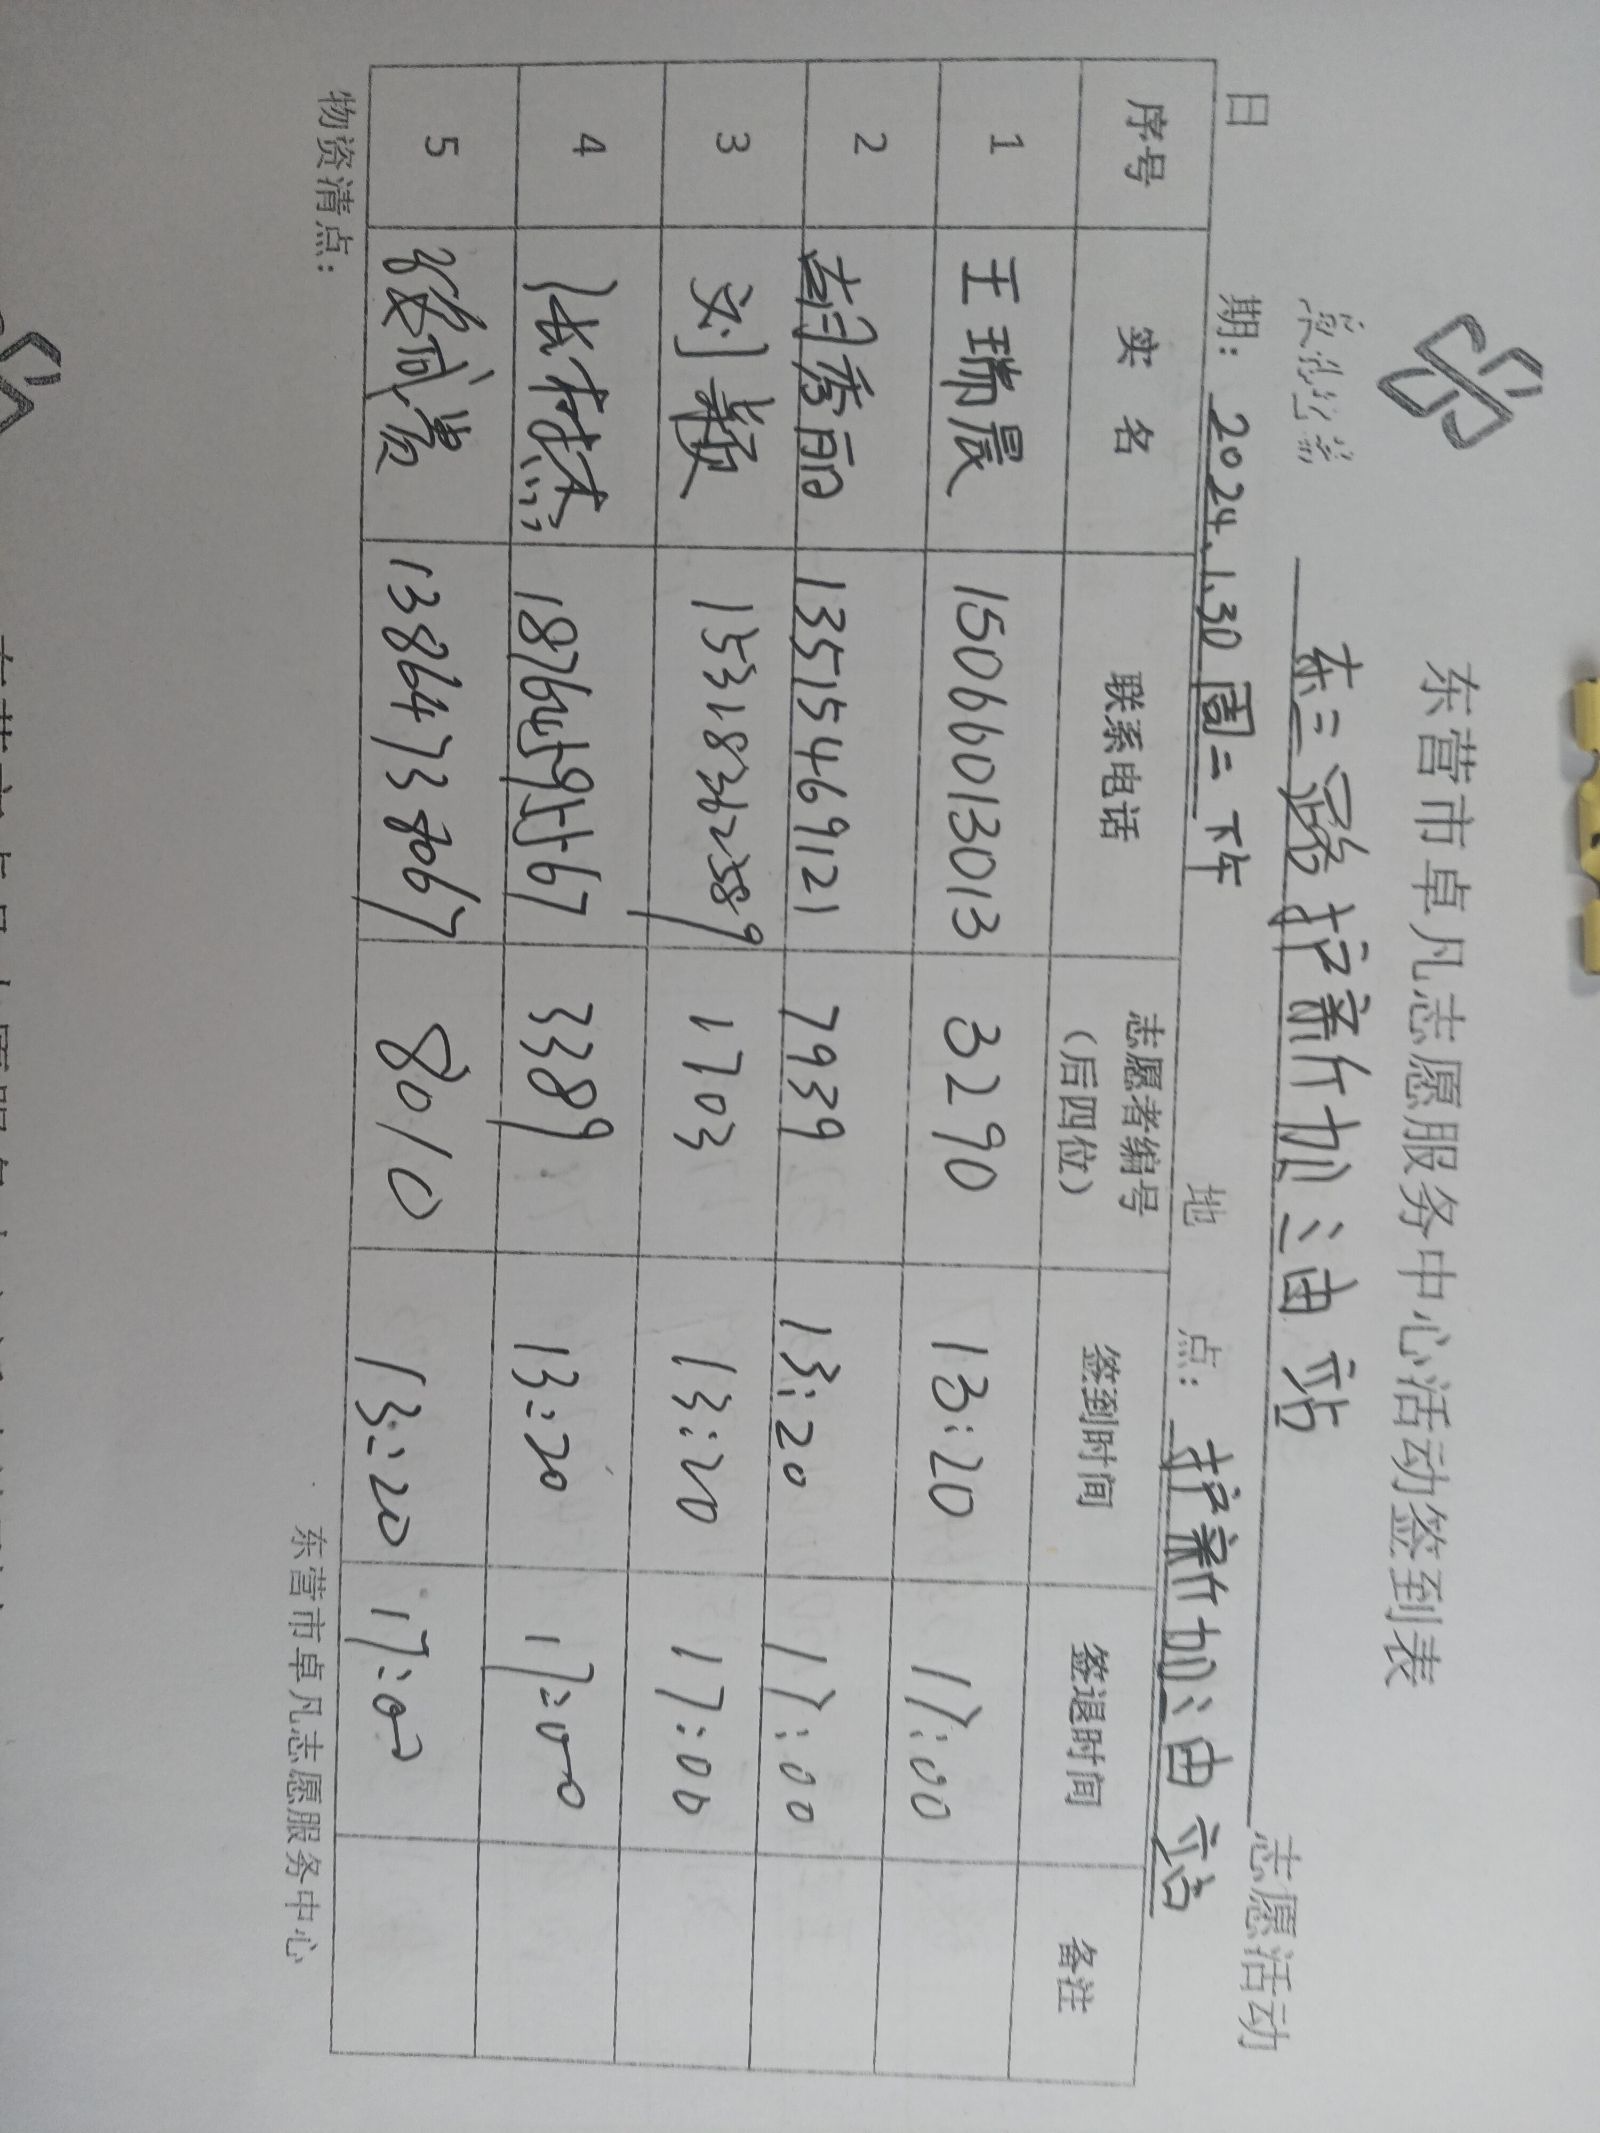 东营市卓凡志愿服务中心活动签到表
东二路护新加油站 志愿活动
日 期：2024.1.30周二下午 地 点：护新加油站
序号 实 名 联系电话 志愿者编号（后四位） 签到时间 签退时间 备注
1 王瑞晨 15066013013 3290 13:20 17:00
2 胡秀丽 13515469121 7939 13:20 17:00
3 刘颖 15318362589 1703 13:20 17:00
4 张树杰 18764595567 3389 13:20 17:00
5 13864738067 8010 13:20 17:00
物资清点：
东营市卓凡志愿服务中心